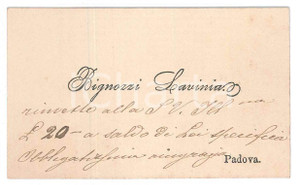 Bignozzi Lavinia
rimette alla S. V. Ill ma
£ 20 - a saldo di Lei specifica
Obbligatissima ringrazia
Padova.